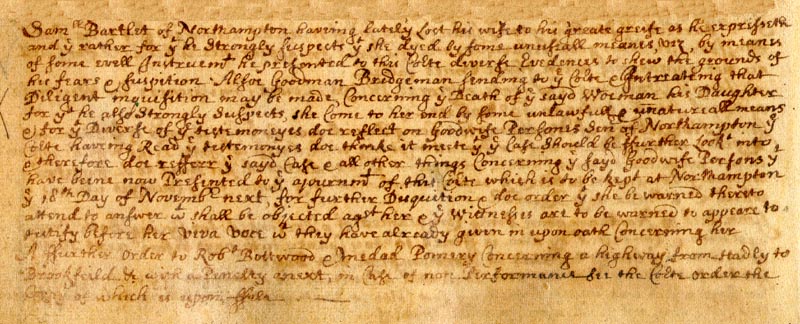 Sam:ll Bartlet of Northampton haveing lately Lost his wife to his greate greife as he expresseth
and y rather for y he strongly suspects y she dyed by some unusuall meanes, viz, by meanes
of some evill Instrumt he presented to this Corte diverse Evedences to shew the grounds of
her feares & suspition. Alsoe Goodman Bridgeman sending to y Corte & Intreateing that
Diligent inquisition may be made Concerning y Death of y sayd Woeman his Daughter
for yt he also strongly suspects she come to her end by some unlawfull & unaturall means
& for y Diverse of y testemoneyes doe reflect on Goodwife Persons Sen of Northampton y
Corte haveing Read y testemonyes doe thinke it meete y y Case should be ffurther Lookt into
& therefore doe refferr y sayd Case & all other things Concerning y sayd Goodwife Persons y
have beine now Presented to y ajournmt of this Corte which is to be kept at Northampton
y 18th Day of Novembr next, for further Disquition & doe order y she be warned thereto
attend to answer w shall be objected agst her & y Wittnesses are to be warned to appeare to
testify before her viva voce wt they have already given in upon oath concerning her
A ffurther order to Robt Boltwood & Medad Pomery Concerning a highway from Hadly to
Brookfeild & with a Penalty anext, in Case of non Performance see the Corte order the
of which is upon ffile